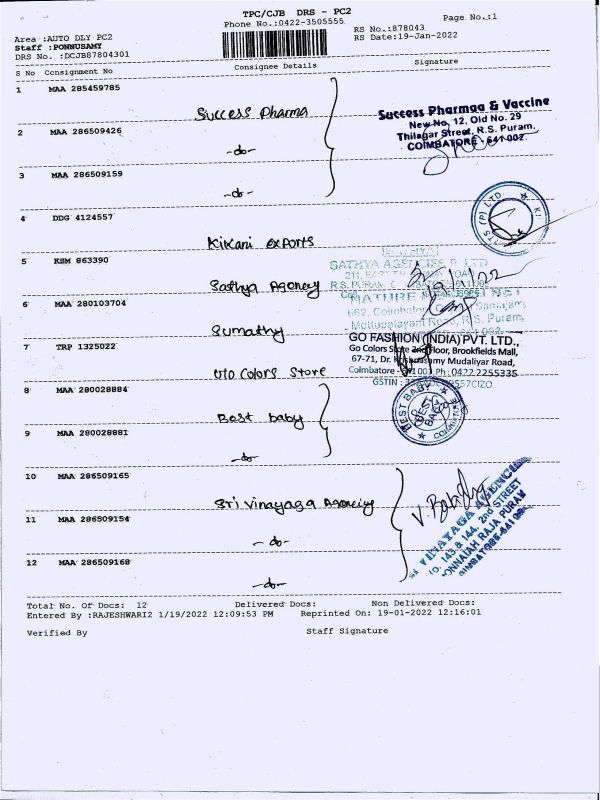 TPC/CJB DRS - PC2
Phone No.:0422-3505555
Page No.:1
Area :AUTO DLY PC2
RS No.:878043
Staff :PONNUSAMY
RS Date:19-Jan-2022
DRS No. :DCJB87804301
S No Consignment No Consignee Details Signature
1 MAA 285459785
Success Pharma
Success Pharmaa & Vaccine
New No. 12, Old No. 29
Thilagar Street, R.S. Puram,
COIMBATORE - 641 002.
2 MAA 286509426
-do-
3 MAA 286509159
-do-
4 DDG 4124557
Kikani exports
5 KSM 863390
Sathya Agency
SATHYA AGENCIES P LTD
R.S. PURAM
6 MAA 280103704
Sumathy
NATURE
662, Coimbatore
Mettupalayam Road, R.S. Puram,
7 TRP 1325022
Uto Colors Store
GO FASHION (INDIA) PVT. LTD.,
Go Colors Store 2nd Floor, Brookfields Mall,
67-71, Dr. Krishnasamy Mudaliyar Road,
Coimbatore - 641 001 Ph : 0422 2255335
GSTIN :
8 MAA 280028884
Best baby
BEST BABY
COIMBATORE
9 MAA 280028881
-do-
10 MAA 286509165
Sri Vinayaga Agenciy
VINAYAGA AGENCIES
NO. 143 & 144, 2nd STREET
PONNAIAH RAJA PURAM
11 MAA 286509154
-do-
12 MAA 286509168
-do-
Total No. Of Docs: 12 Delivered Docs: Non Delivered Docs:
Entered By :RAJESHWARI2 1/19/2022 12:09:53 PM Reprinted On: 19-01-2022 12:16:01
Verified By Staff Signature